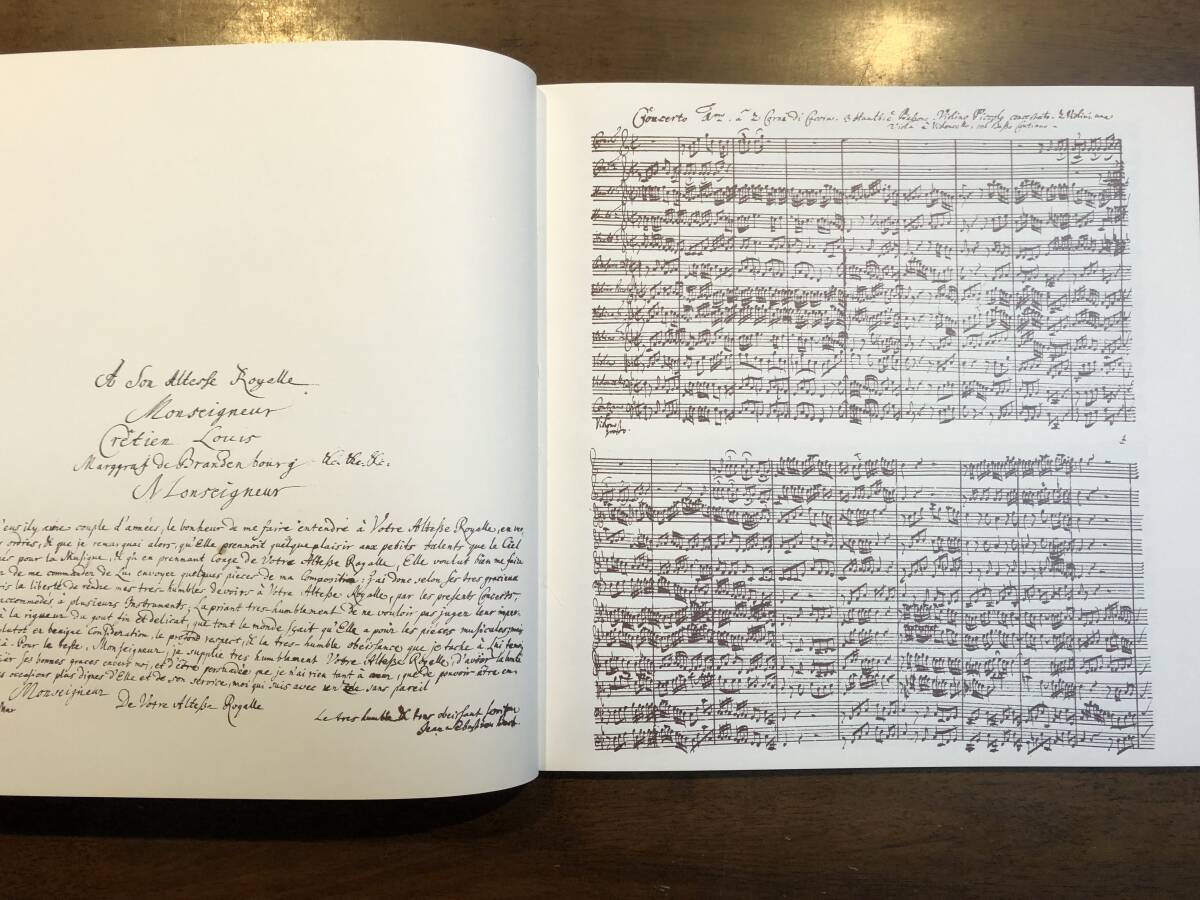 A Son Altesse Royalle
Monseigneur
Crêtien Louis
Marggraf de Brandenbourg &c. &c. &c.
Monseigneur
il y a une couple d'années, le bonheur de me faire entendre à Votre Altesse Royalle, en
ordres, & que je remarquai alors, qu'Elle prennoit quelque plaisir aux petits talents que le Ciel
pour la Musique, & qu'en prennant Conge de Votre Altesse Royalle, Elle voulut bien me faire
de me commander de Lui envoyer quelques pieces de ma Composition: j'ai donc selon ses tres gracieux
la liberté de rendre mes tres-humbles devoirs à Votre Altesse Royalle, par les presents Concerts,
accommodés à plusieurs Instruments; La priant tres-humblement de ne vouloir pas juger leur imper-
à la rigueur du gout fin et delicat, que tout le monde sçait qu'Elle a pour les pieces musicales; mais
plutot en benigne Consideration, le profond respect, & la tres-humble obeissance que je tache à Lui
Pour le reste, Monseigneur, je supplie tres humblement Votre Altesse Royalle, d'avoir la bonté
ses bonnes graces envers moi, et d'être persuadée que je n'ai rien tant à cœur, que de pouvoir être em-
occasions plus dignes d'Elle et de son service, moi qui suis avec un zele sans pareil
Monseigneur
De Votre Altesse Royalle
Le tres humble & tres obeissant serviteur
Jean Sebastien Bach.
Concerto 1mo. à 2 Corni di Caccia. 3 Hautb: è Bassono. Violino Piccolo concertato. 2 Violini, una
Viola è Violoncello, col Basso Continuo.